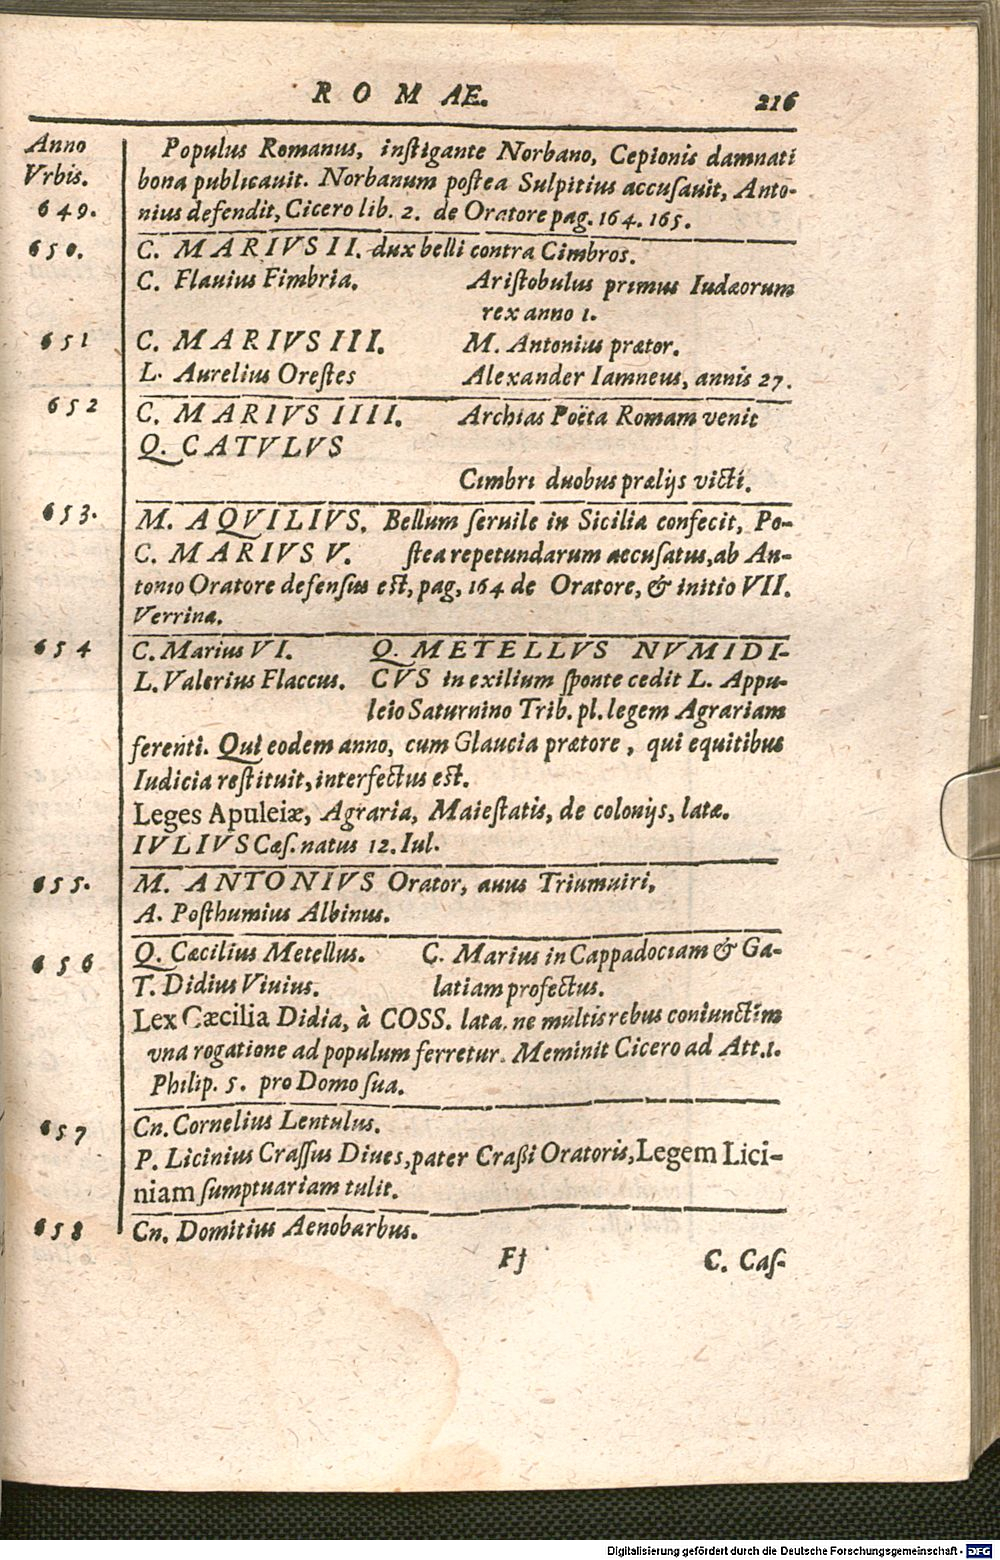 ROMAE. 216
Anno Populus Romanus, inſtigante Norbano, Cepionis damnati
Vrbis. bona publicauit. Norbanum poſtea Sulpitius accuſauit, Anto-
649. nius defendit, Cicero lib. 2. de Oratore pag. 164. 165.
650. C. MARIVS II. dux belli contra Cimbros.
C. Flauius Fimbria. Ariſtobulus primus Iudæorum
rex anno 1.
651 C. MARIVS III. M. Antonius prætor.
L. Aurelius Oreſtes Alexander Iamneus, annis 27.
652 C. MARIVS IIII. Archias Poëta Romam venit
Q. CATVLVS
Cimbri duobus prælijs victi.
653. M. AQVILIVS. Bellum ſeruile in Sicilia confecit, Po-
C. MARIVS V. ſtea repetundarum accuſatus, ab An-
tonio Oratore defenſus eſt, pag, 164 de Oratore, & initio VII.
Verrinæ.
654 C. Marius VI. Q. METELLVS NVMIDI-
L. Valerius Flaccus. CVS in exilium ſponte cedit L. Appu-
leio Saturnino Trib. pl. legem Agrariam
ferenti. Qui eodem anno, cum Glaucia prætore, qui equitibus
Iudicia reſtituit, interfectus eſt.
Leges Apuleiæ, Agraria, Maieſtatis, de colonijs, latæ.
IVLIVS Cæſ. natus 12. Iul.
655. M. ANTONIVS Orator, auus Triumuiri,
A. Poſthumius Albinus.
656 Q. Cæcilius Metellus. C. Marius in Cappadociam & Ga-
T. Didius Viuius. latiam profectus.
Lex Cæcilia Didia, à COSS. lata, ne multis rebus coniunctim
vna rogatione ad populum ferretur. Meminit Cicero ad Att. 1.
Philip. 5. pro Domo ſua.
657 Cn. Cornelius Lentulus.
P. Licinius Craſſus Diues, pater Craßi Oratoris, Legem Lici-
niam ſumptuariam tulit.
658 Cn. Domitius Aenobarbus.
Fj C. Caſ-
Digitalisierung gefördert durch die Deutsche Forschungsgemeinschaft - DFG